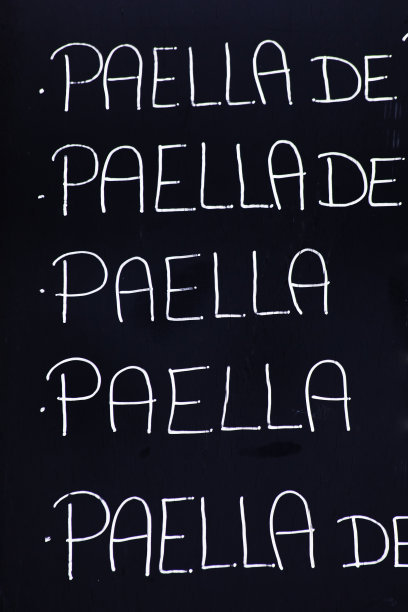 · PAELLA DE
· PAELLA DE
· PAELLA
· PAELLA
· PAELLA DE